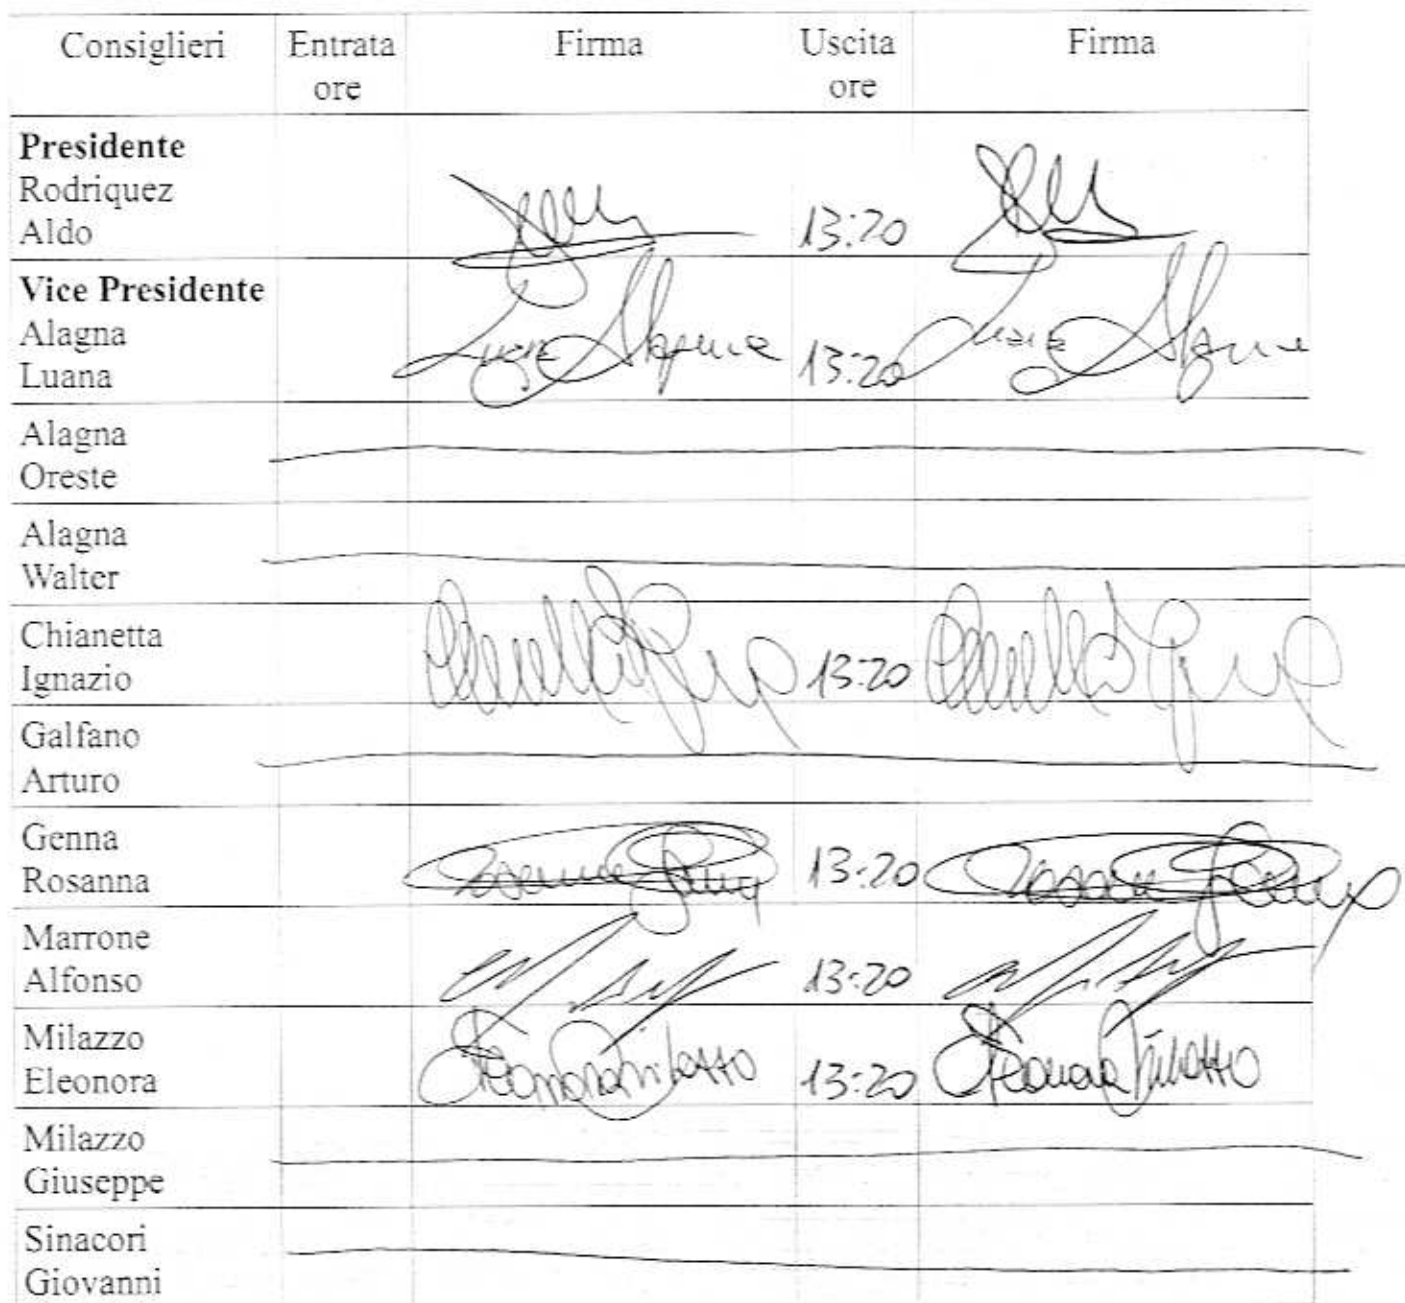 Consiglieri Entrata ore Firma Uscita ore Firma
Presidente
Rodriquez
Aldo 13:20
Vice Presidente
Alagna
Luana Luana Alagna 13:20 Luana Alagna
Alagna
Oreste
Alagna
Walter
Chianetta
Ignazio 13:20
Galfano
Arturo
Genna
Rosanna 13:20
Marrone
Alfonso 13:20
Milazzo
Eleonora Eleonora Milazzo 13:20 Eleonora Milazzo
Milazzo
Giuseppe
Sinacori
Giovanni